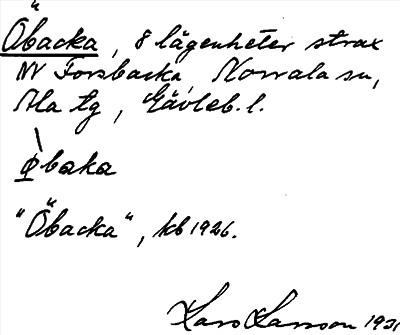 Öbacka, 8 lägenheter strax
NV Forsbacka, Norrala sn,
Ala tg, Gävleb. l.
øbaka
"Öbacka", kb 1926.
Lars Larsson 1931